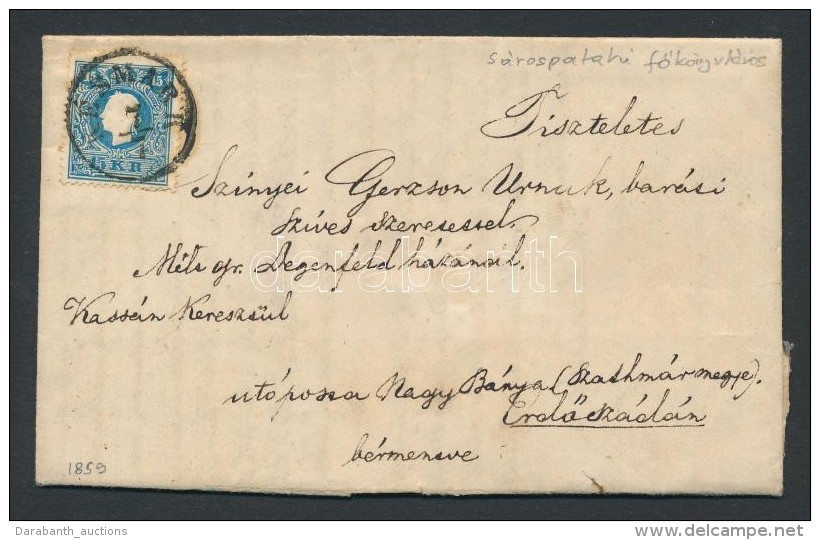 sárospataki főkönyvtáros
KÉSMARK
15
15 KR
Tiszteletes
Szinyei Gerzson Urnak, baráti
szíves szeretettel.
Mélt gr. Degenfeld házánál.
Kassán keresztül
utóposta Nagy Bánya (Szathmár megye).
Erdőszádán
bérmentve
1859
darabanth
Darabanth_auctions
www.delcampe.net